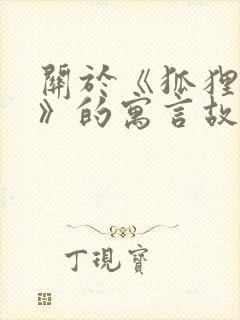 關於《狐狸
》的寓言故
丁現寶